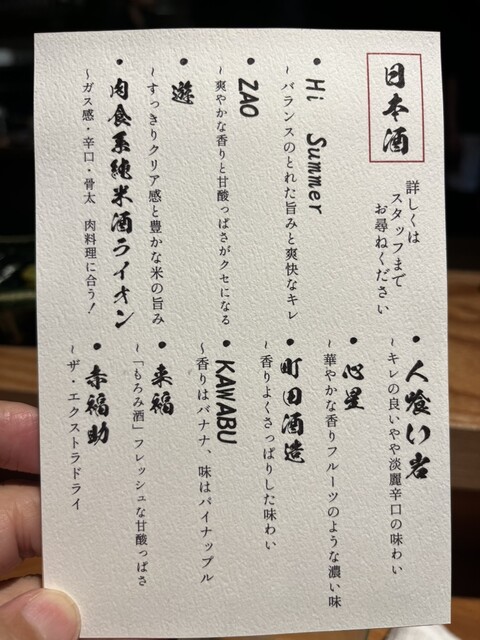 日本酒
詳しくは
スタッフまで
お尋ねください
・Hi Summer
~バランスのとれた旨みと爽快なキレ
・ZAO
~爽やかな香りと甘酸っぱさがクセになる
・遊
~すっきりクリア感と豊かな米の旨み
・肉食系純米酒ライオン
~ガス感・辛口・骨太 肉料理に合う！
・人喰い岩
~キレの良いやや淡麗辛口の味わい
・心星
~華やかな香りフルーツのような濃い味
・町田酒造
~香りよくさっぱりした味わい
・KAWABU
~香りはバナナ、味はパイナップル
・来福
~「もろみ酒」フレッシュな甘酸っぱさ
・赤福助
~ザ・エクストラドライ